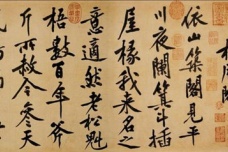 松風閣
依山築閣見平
川夜闌箕斗插
屋椽我來名之
意適然老松魁
梧數百年斧
斤所赦今參天